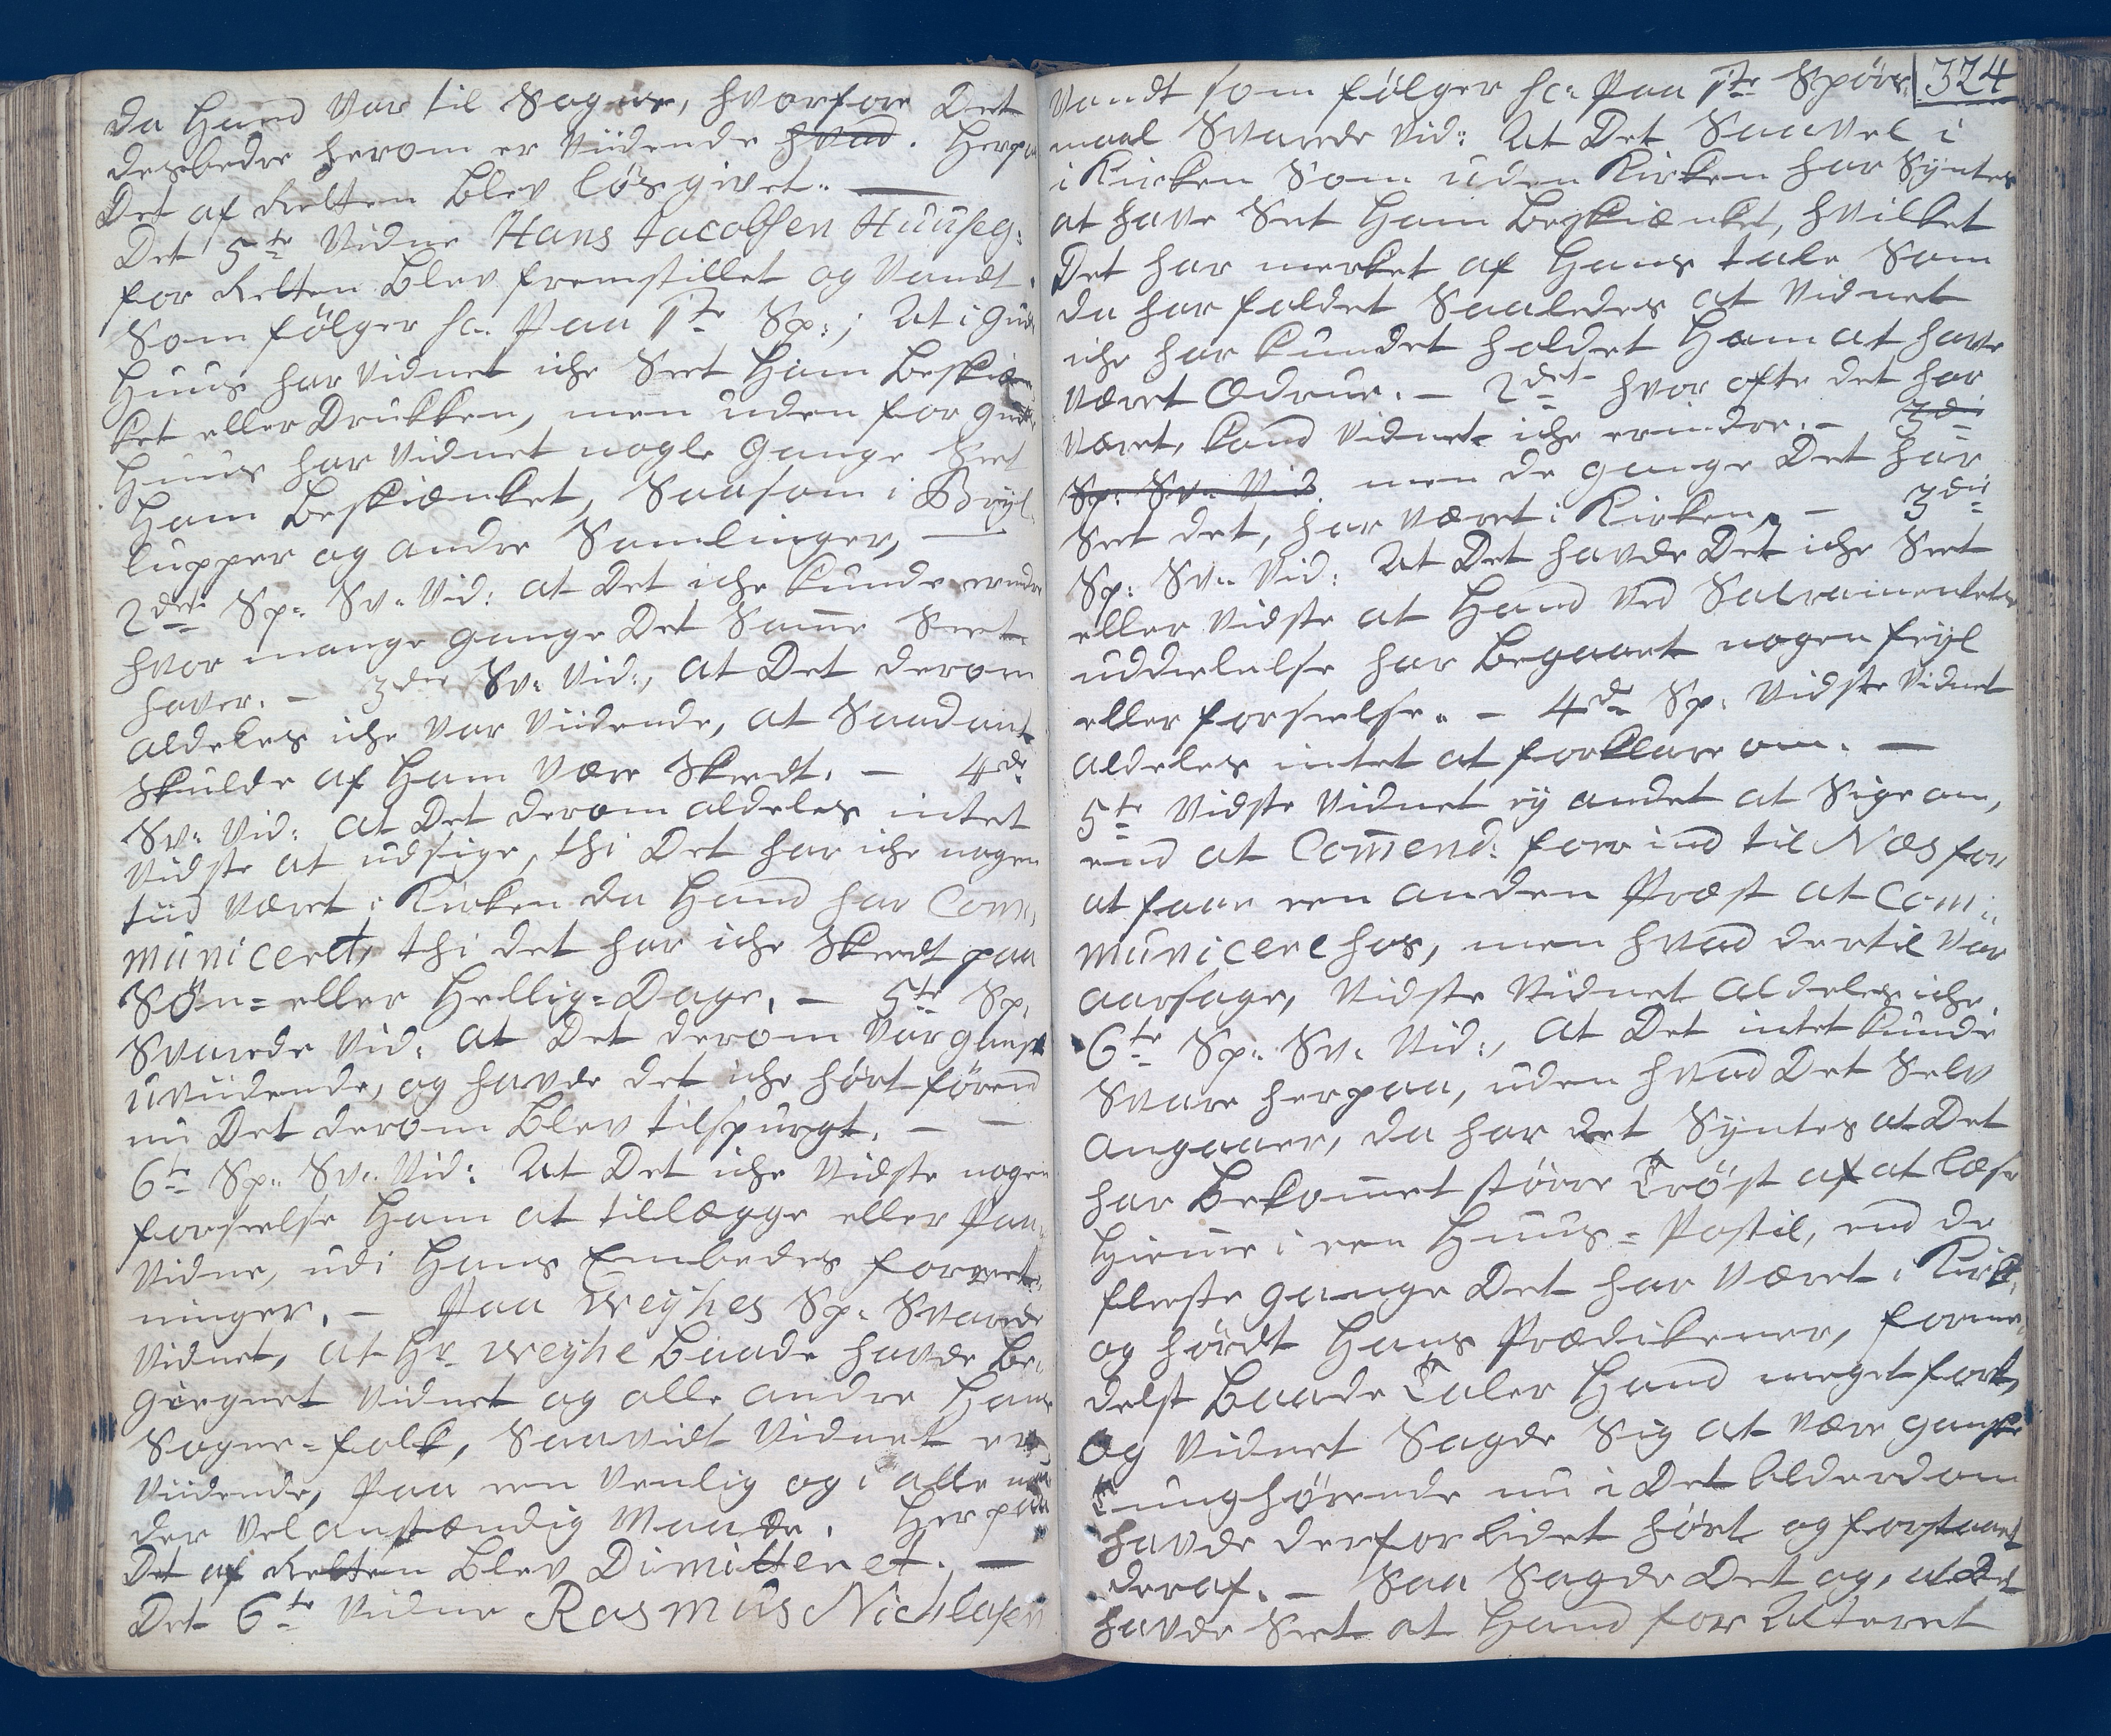 da Hand var til Sogne, hvorfore Det
desbedre herom er Viidende hvad. Herpaa
Det af Retten blev løsgivet. —
Det 5te Vidne Hans Jacobsen Huuseg:
for Retten blev fremstillet og Vandt
Som følger sc. Paa 1te Sp:; At i Guds
Huus har Vidnet iche Seet Ham beskien
ket eller Drukken, men uden for Guds
Huus har Vidnet nogle Gange Seet
Ham beskiænket, Saasom i Bryl
lupper og andre Samlinger, —
2det Sp: Sv: Vid: at Det iche kunde erindre
hvor mange Gange Det Samme Seet
haver. — 3die Sv: Vid:, at Det derom
aldeles iche var Viidende, at Saadant
skulde af Ham være Skeedt. — 4de
Sv: Vid: at Det derom aldeles intet
Vidste at udsige, thi Det har iche nogen
tiid været i Kirken da Hand har Com,
municeret, thi det har iche Skeedt paa
Søn= eller Hellig=Dage. — 5te Sp.
Svarede Vid: at Det derom var gansk
uviidende, og havde det iche hørt førend
nu Det derom blev tilspurgt. — —
6te Sp: Sv: Vid: At Det iche Vidste nogen
forseelse Ham at tillægge eller Paa
Vidne, udi Hans Embedes forret
ninger. — Paa Weyhes Sp: Svarede
Vidnet, at Hr Weyhe baade havde be
giegnet Vidnet og alle andre Hans
Sogne=folk, Saavidt Vidnet er
Viidende, Paa een Venlig og i alle
der Vel anstændig Maade. Herpaa
Det af Retten blev Dimitteret. —
Det 6te Vidne Rasmus Nichlasen
324
Vandt som følger sc: Paa 1te Spørs
maal Svarede Vid: At Det Saavel i
i Kirken Som uden Kirken har Syntes
at have Seet Ham beskiænket, hvilket
Det har merket af Hans tale Som
da har faldet Saaledes at Vidnet
iche har kundet holdet Ham at have
været Ædrue. — 2det hvor ofte det har
været, kand Vidnet iche erindre. — 3di
Sp: Sv: Vid. men de gange Det har
Seet det, har været i Kirken. — 3die
Sp: Sv: Vid: At Det havde Det iche Seet
eller Vidste at Hand ved Sacramentets
uddelelse har begaaet nogen feyl
eller forseelse. — 4de Sp: Vidste Vidnet
aldeles intet at forklare om. —
5te Vidste Vidnet ey andet at Sige om,
end at Com̄end: foer ind til Næs for
at faae een anden Præst at Com:
municere hos, men hvad dertil var
aarsage, Vidste Vidnet aldeles iche.
6te Sp: Sv: Vid:, at Det intet kunde
Svare herpaa, uden hvad Det Selv
angaaer, da har det Syntes at Det
har bekom̄et større Trøst af at læse
Hiem̄e i een Huus=Postil, end de
fleeste gange Det har været i Kirk,
og hørdt Hans Prædikener, forme
delst baade Taler Hand meget fort,
og Vidnet Sagde Sig at være ganske
Tunghørende nu i Det Alderdom
havde derfor lidet hørt og forstaaet
deraf. — Saa Sagde Det og, at Det
havde Seet at Hand for Alteret